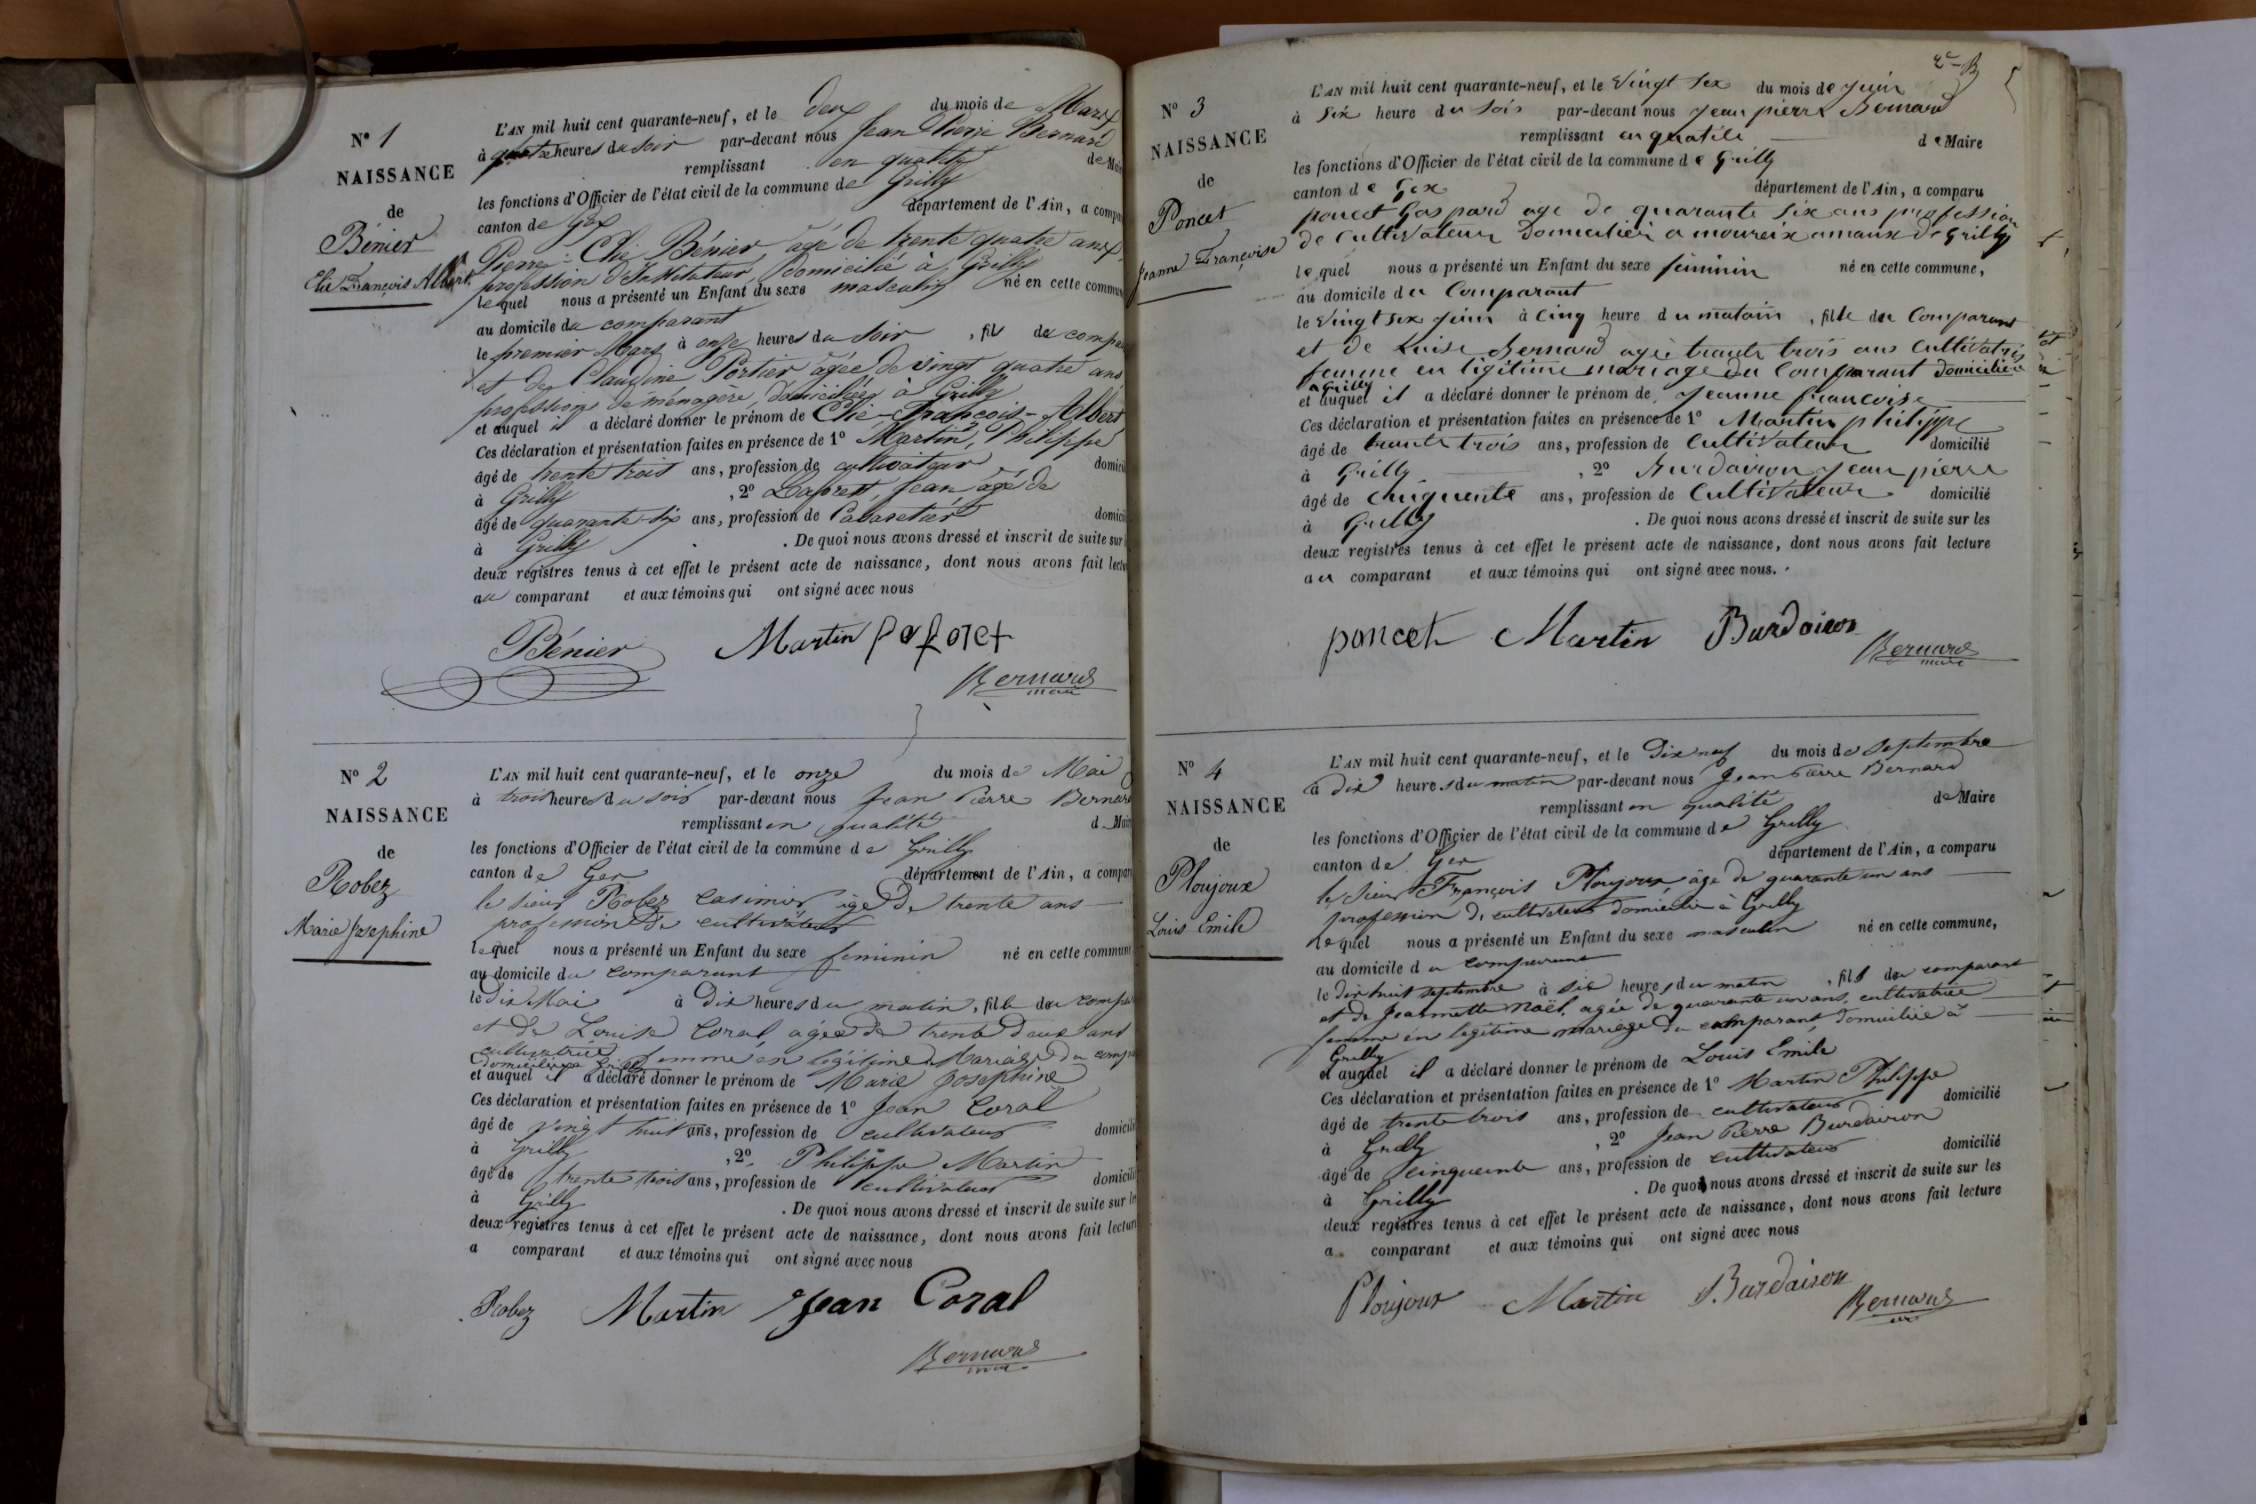 N° 1
NAISSANCE
de
Bénier
Elie François Albert
L'AN mil huit cent quarante-neuf, et le deux du mois de Mars
à quatre heures du soir par-devant nous Jean Pierre Bernard
remplissant en qualité de Mai
les fonctions d'Officier de l'état civil de la commune de Grilly
canton de Gex département de l'Ain, a compa
Pierre-Elie Bénier, âgé de trente quatre ans,
profession d'Instituteur, domicilié à Grilly
lequel nous a présenté un Enfant du sexe masculin né en cette commun
au domicile du comparant
le premier Mars à onze heures du soir, fils du compa
et de Claudine Portier âgée de vingt quatre ans
profession de ménagère, domiciliée à Grilly
et auquel il a déclaré donner le prénom de Elie-François-Albert
Ces déclaration et présentation faites en présence de 1° Martin, Philippe
âgé de trente trois ans, profession de cultivateur domicil
à Grilly, 2° Laforest, Jean, âgé de
âgé de quarante six ans, profession de Cabaretier domici
à Grilly. De quoi nous avons dressé et inscrit de suite sur
deux registres tenus à cet effet le présent acte de naissance, dont nous avons fait lectu
au comparant et aux témoins qui ont signé avec nous
Bénier Martin laforet
Bernard
maire
N° 2
NAISSANCE
de
Robez
Marie Josephine
L'AN mil huit cent quarante-neuf, et le onze du mois de Mai
à trois heures du soir par-devant nous Jean Pierre Bernard
remplissant en qualité d Mair
les fonctions d'Officier de l'état civil de la commune de Grilly
canton de Gex département de l'Ain, a compar
le sieur Robez Casimir âgé de trente ans
profession de cultivateur
lequel nous a présenté un Enfant du sexe feminin né en cette commune
au domicile du comparant
le dix Mai à dix heures du matin, fille du compa
et de Louise Coral agée de trente deux ans
cultivatrice femme en légitime Mariage du comp
domiciliée a Grilly
et auquel il a déclaré donner le prénom de Marie Josephine
Ces déclaration et présentation faites en présence de 1° Jean Coral
âgé de vingt huit ans, profession de cultivateur domicili
à Grilly, 2° Philippe Martin
âgé de trente trois ans, profession de cultivateur domicili
à Grilly. De quoi nous avons dressé et inscrit de suite sur le
deux registres tenus à cet effet le présent acte de naissance, dont nous avons fait lectur
a comparant et aux témoins qui ont signé avec nous
Robez Martin Jean Coral
Bernard
maire
N° 3
NAISSANCE
de
Poncet
Jeanne Françoise
L'AN mil huit cent quarante-neuf, et le vingt sex du mois de juin
à six heure du soir par-devant nous jean pierre Bernard
remplissant en qualité de Maire
les fonctions d'Officier de l'état civil de la commune de Grilly
canton de Gex département de l'Ain, a comparu
poncet Gaspard age de quarante six ans profession
de cultivateur domicilié a moureix amaux de Grilly
lequel nous a présenté un Enfant du sexe féminin né en cette commune,
au domicile du Comparant
le vingt sex juin à cinq heure du matain, fille du Comparant
et de Luise Bernard agée traute trois ans cultivatris
femme en légitime mariage du Comparant domiciliée
a Grilly
et auquel il a déclaré donner le prénom de Jeanne francoise
Ces déclaration et présentation faites en présence de 1° Martin philippe
âgé de traute trois ans, profession de Cultivateur domicilié
à Grilly, 2° Burdairon jean pierre
âgé de cinquente ans, profession de Cultivateur domicilié
à Grilly. De quoi nous avons dressé et inscrit de suite sur les
deux registres tenus à cet effet le présent acte de naissance, dont nous avons fait lecture
au comparant et aux témoins qui ont signé avec nous.
poncet Martin Burdairon
Bernard
maire
N° 4
NAISSANCE
de
Ploujoux
Louis Emile
L'AN mil huit cent quarante-neuf, et le dix neuf du mois de septembre
à dix heures du matin par-devant nous Jean Pierre Bernard
remplissant en qualité de Maire
les fonctions d'Officier de l'état civil de la commune de Grilly
canton de Gex département de l'Ain, a comparu
le sieur François Ploujoux, âgé de quarante un ans
profession de cultivateur domicilié à Grilly
lequel nous a présenté un Enfant du sexe masculin né en cette commune,
au domicile du comparant
le dix huit septembre à six heures du matin, fils du comparant
et de Jeannette Noël, agée de quarante un ans, cultivatrice
femme en légitime mariage du comparant, domiciliée à
Grilly
et auquel il a déclaré donner le prénom de Louis Emile
Ces déclaration et présentation faites en présence de 1° Martin Philippe
âgé de trente trois ans, profession de cultivateur domicilié
à Grilly, 2° Jean Pierre Burdairon
âgé de cinquante ans, profession de cultivateur domicilié
à Grilly. De quoi nous avons dressé et inscrit de suite sur les
deux registres tenus à cet effet le présent acte de naissance, dont nous avons fait lecture
a comparant et aux témoins qui ont signé avec nous
Ploujoux Martin Burdairon
Bernard